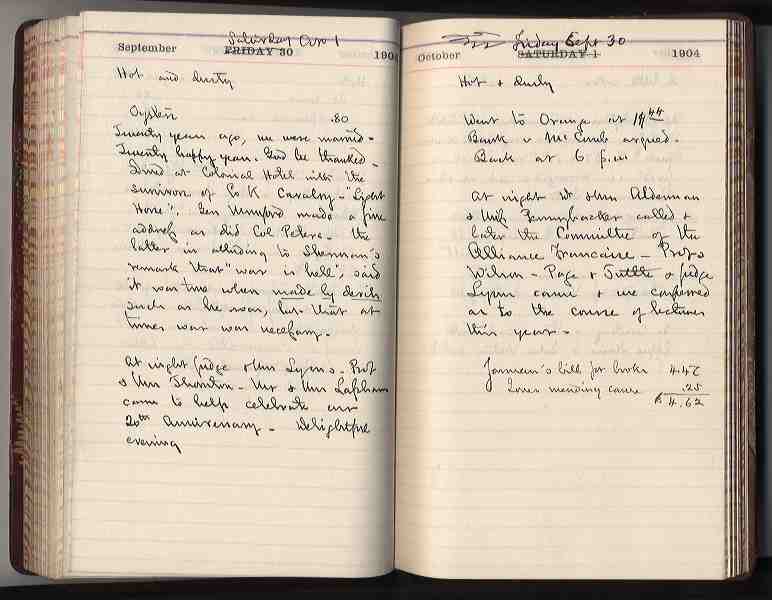 Saturday Oct 1
September FRIDAY 30 1904
Hot and dusty
Oysters .80
Twenty years ago, we were married -
Twenty happy years. God be thanked -
Dined at Colonial Hotel with the
survivors of Co K. Cavalry - "Light
Horse". Gen Mumford made a fine
address as did Col Peters. The
latter in alluding to Sherman's
remark that "war is hell", said
it was true when made by devils
such as he was, but that at
times war was necessary -
At night Judge & Mrs Lyons - Prof
& Mrs Thornton - Mr & Mrs Lapham
came to help celebrate our
20th Anniversary - Delightful
evening
Friday Sept 30
October SATURDAY 1 1904
Hot & dusty
Went to Orange at 11 44
Bank v McComb argued.
Back at 6 p.m.
At night Dr & Mrs Alderman
& Miss Pennybacker called &
later the Committee of the
Alliance Francaise - Profs
Wilson - Page & Tuttle & Judge
Lyons came & we conferred
as to the course of lectures
this year -
bill for books 4.42
mending cane .25
$ 4.62